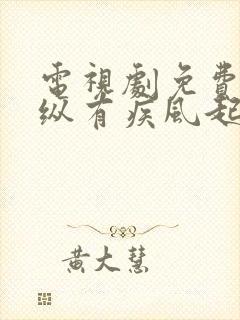 電視劇免費
纵有疾风起
黄大慧